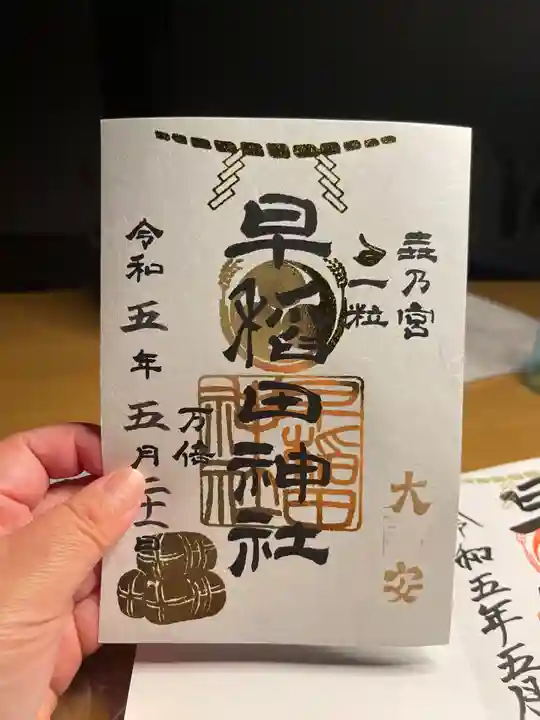 壵乃宮
一粒
早稲田神社
早稲田神社
大安
万倍
令和五年五月二十一日
令和五年五月